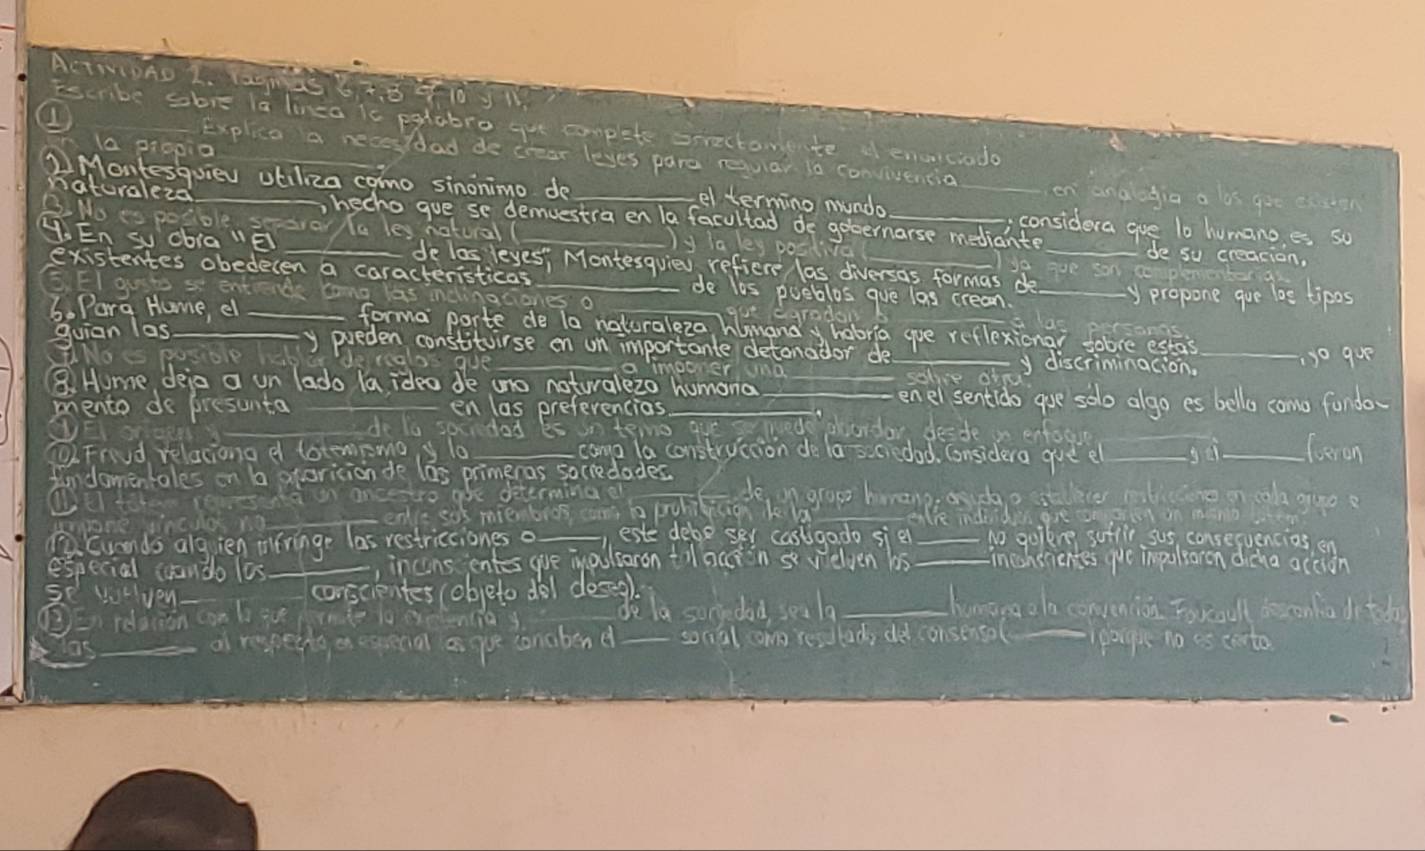 ACTIVIDAD 2. Páginas 6, 7, 8 9, 10 y 11.
Escribe sobre la línea la palabra que complete correctamente el enunciado
① ______ Explica la necesidad de crear leyes para regular la convivencia ______ en analogía a las que existen
en la propia ______.
2) Montesquieu utiliza como sinónimo de ______ el termino mundo ______; considera que lo humano, es su
naturaleza ______, hecho que se demuestra en la facultad de gobernarse mediante ______ de su creación.
3. No es posible separar la ley natural (______) y la ley positiva (______) ya que son complementarias
4. En su obra "El ______ de las leyes", Montesquieu, refiere las diversas formas de ______ y propone que los tipos
existentes obedecen a características ______ de los pueblos que las crean.
5. El gusto se entiende como las inclinaciones o ______ que agradan ______ a las personas.
6. Para Hume, el ______ forma parte de la naturaleza humana y habría que reflexionar sobre estas ______, ya que
guian las ______ y pueden constituirse en un importante detonador de ______ y discriminación.
7. No es posible hablar de reglas que ______ a imponer una ______ sobre otra.
8. Hume, deja a un lado la idea de una naturaleza humana ______ en el sentido que solo algo es bello como funda-
mento de presunta ______ en las preferencias ______.
9. El origen y ______ de la sociedad es un tema que se puede abordar desde un enfoque ______
10. Freud relaciona el totemismo y la ______ como la construcción de la sociedad. Considera que el ______ y el ______ fueron
fundamentales en la aparición de las primeras sociedades.
11. El totem representa un ancestro que determina el ______ de un grupo humano, ayuda a establecer restricciones en cada grupo e
impone vínculos no ______ entre sus miembros, como la prohibición de la ______ entre individuos que comparten un mismo totem.
12. Cuando alguien infringe las restricciones o ______, este debe ser castigado si el ______ No quiere sufrir sus consecuencias, en
especial cuando los ______, inconscientes que impulsaron tal acción se vuelven los ______ inconscientes que impulsaron dicha acción
se vuelven ______ conscientes (objeto del deseo).
13. En relación con lo que permite la existencia y ______ de la sociedad, sea la ______ humana o la convención. Foucault desconfía de todas
las ______ al respecto, en especial las que conciben el ______ social como resultado del consenso (______) porque no es cierto